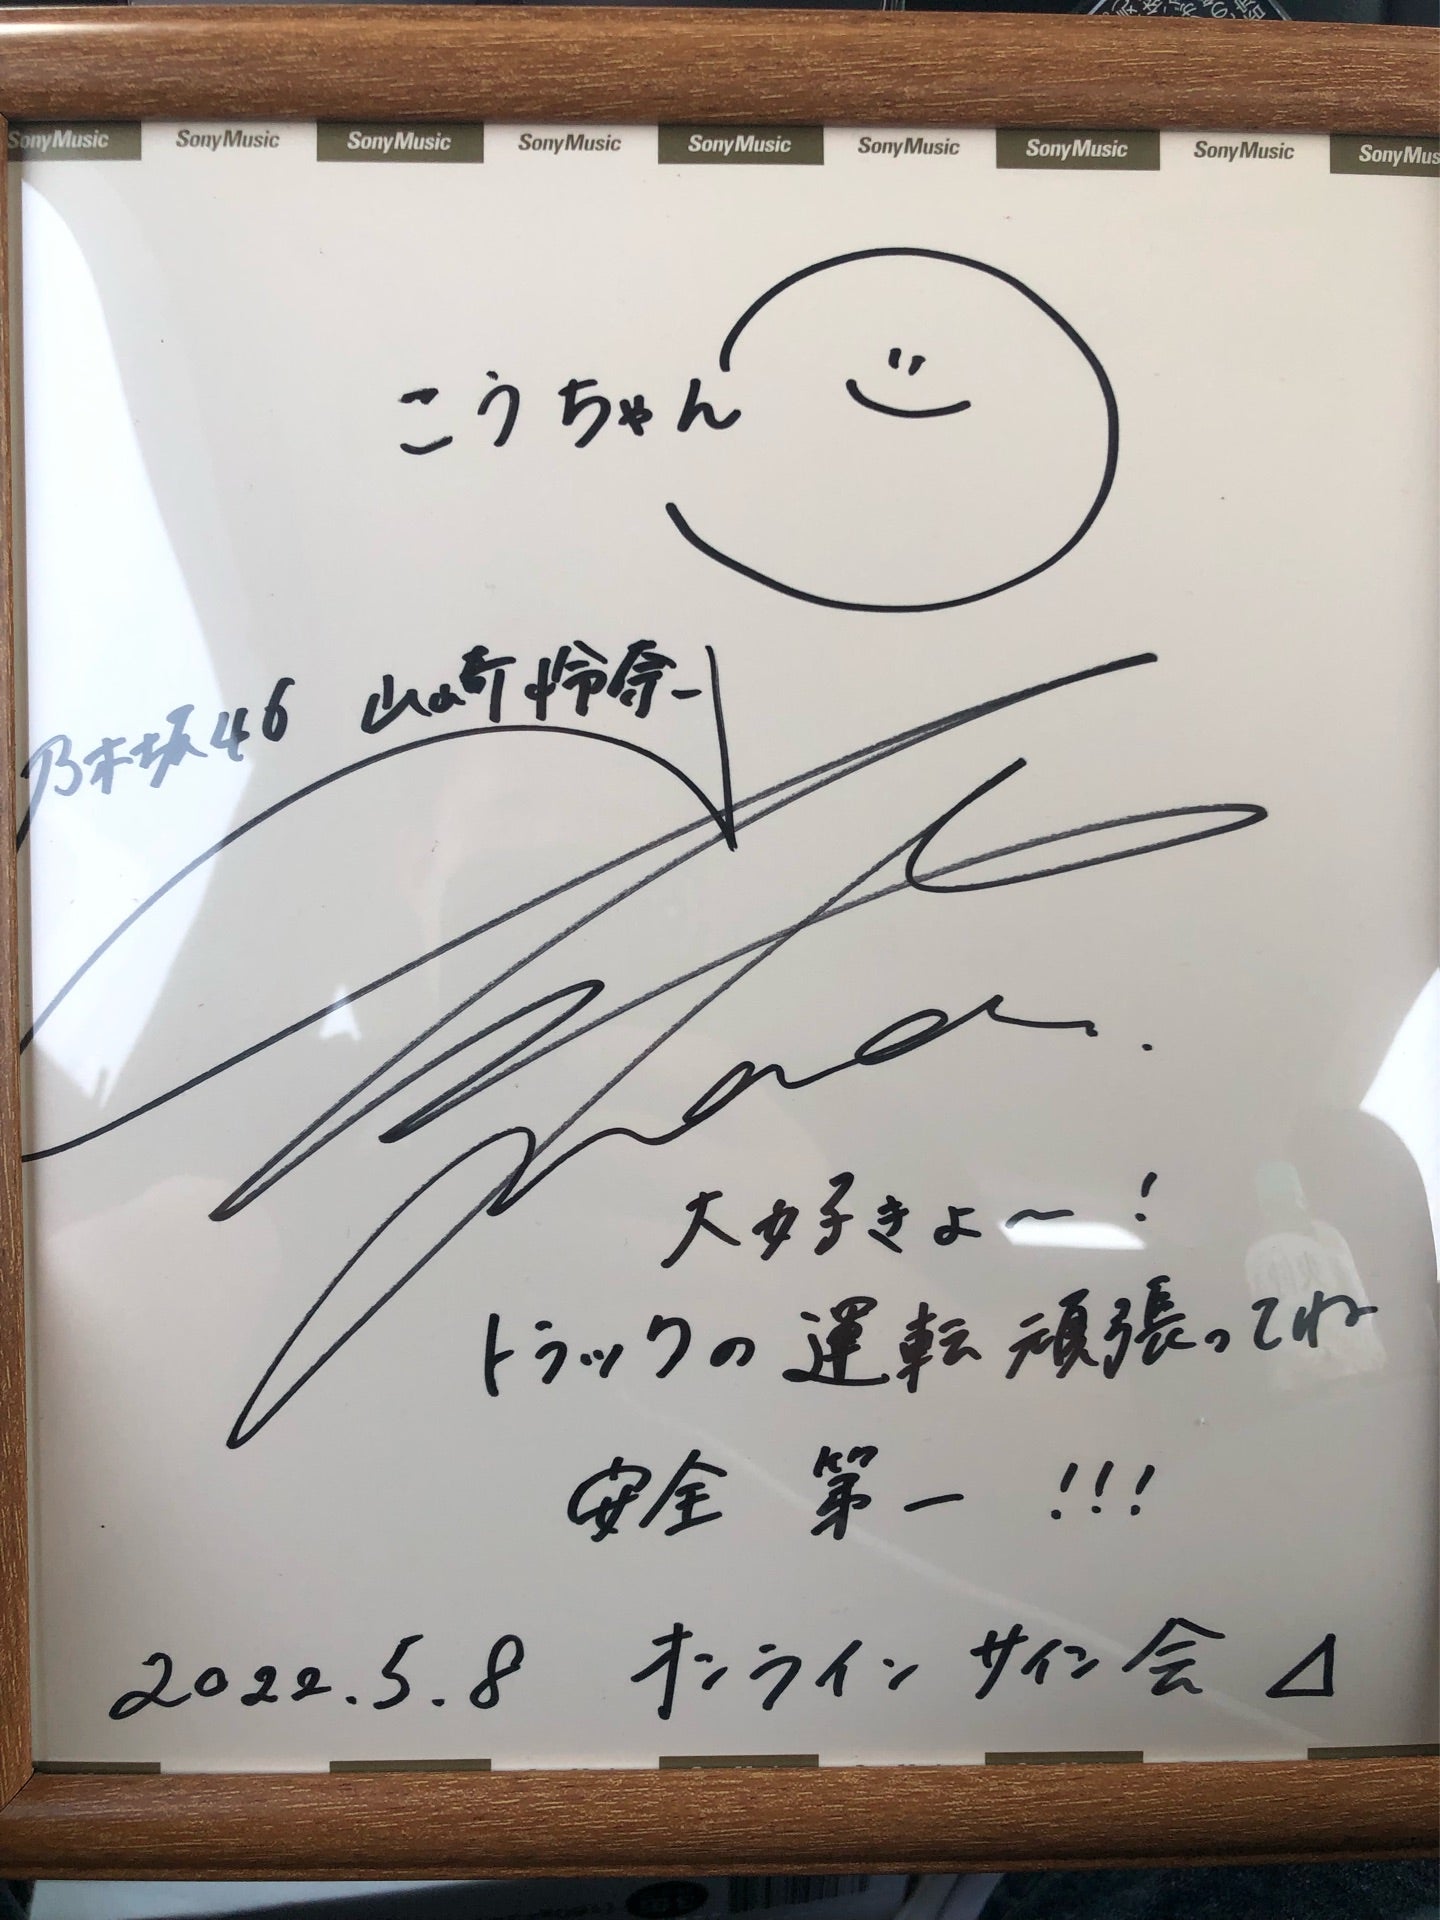 SonyMusic SonyMusic SonyMusic SonyMusic SonyMusic SonyMusic SonyMusic SonyMusic SonyMus
こうちゃん
乃木坂46 山崎怜奈
大好きよ〜!
トラックの運転頑張ってね
安全第一!!!
2022.5.8 オンラインサイン会